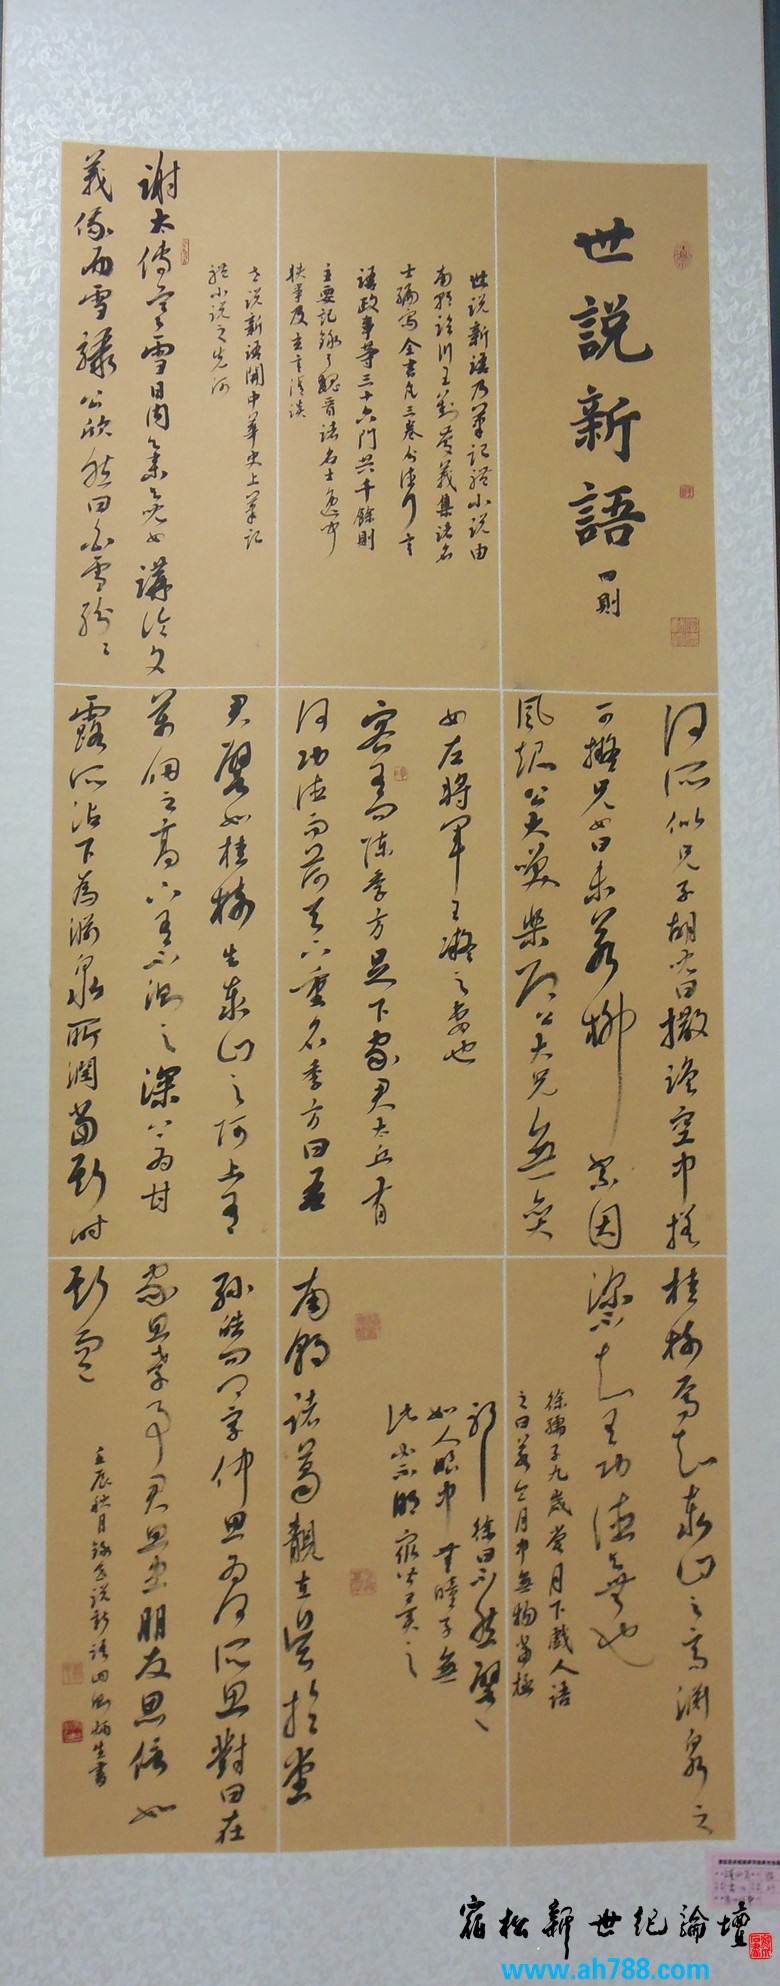 世説新語
四則
世説新語乃筆記體小説由
南朝臨川王劉義慶集諸名
士編寫全書凡三卷分德行言
語政事等三十六門共千餘則
主要記錄了魏晉諸名士逸聞
軼事及玄言清談
世説新語開中華史上筆記
體小説之先河
謝太傅寒雪日内集與兒女講論文
義俄而雪驟公欣然曰白雪紛紛
何所似兄子胡兒曰撒鹽空中差
可擬兄女曰未若柳絮因
風起公大笑樂即公大兄無奕
女左將軍王凝之妻也
客有問陳季方足下家君太丘有
何功德而荷天下重名季方曰吾
家君譬如桂樹生泰山之阿上有
萬仞之高下有不測之深上為甘
露所沾下為淵泉所潤當斯之時
桂樹焉知泰山之高淵泉之
深不知有功德與無也
徐孺子九歲嘗月下戲人語
之曰若令月中無物當極
明邪徐曰不然譬
如人眼中有瞳子無
此必不明
南朝諸葛靚在吳於朝堂
孫皓問卿字仲思為何所思對曰在
家思孝事君思忠朋友思信如
斯而已
壬辰秋月錄世説新語四則炳生書
宿松新世纪論壇
www.ah788.com